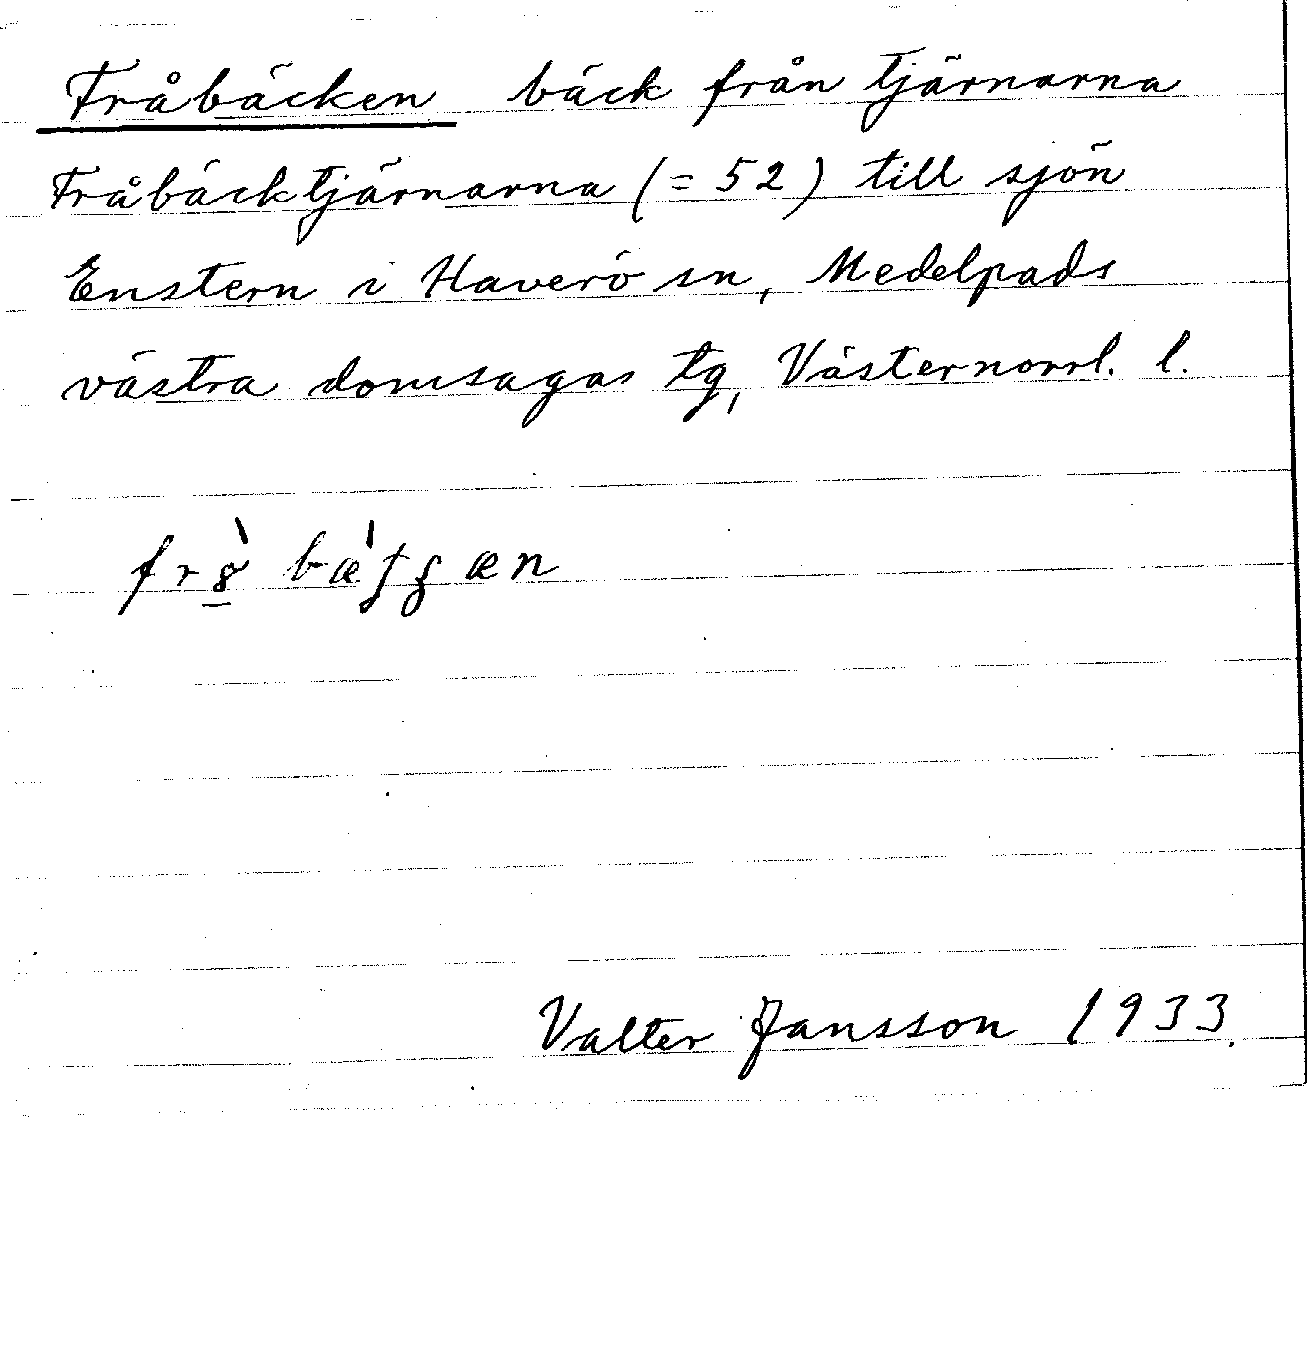 Fråbäcken bäck från tjärnarna
Fråbäcktjärnarna (= 52) till sjön
Enstern i Haverö sn, Medelpads
västra domsagas tg, Västernorrl. l.
Valter Jansson 1933.